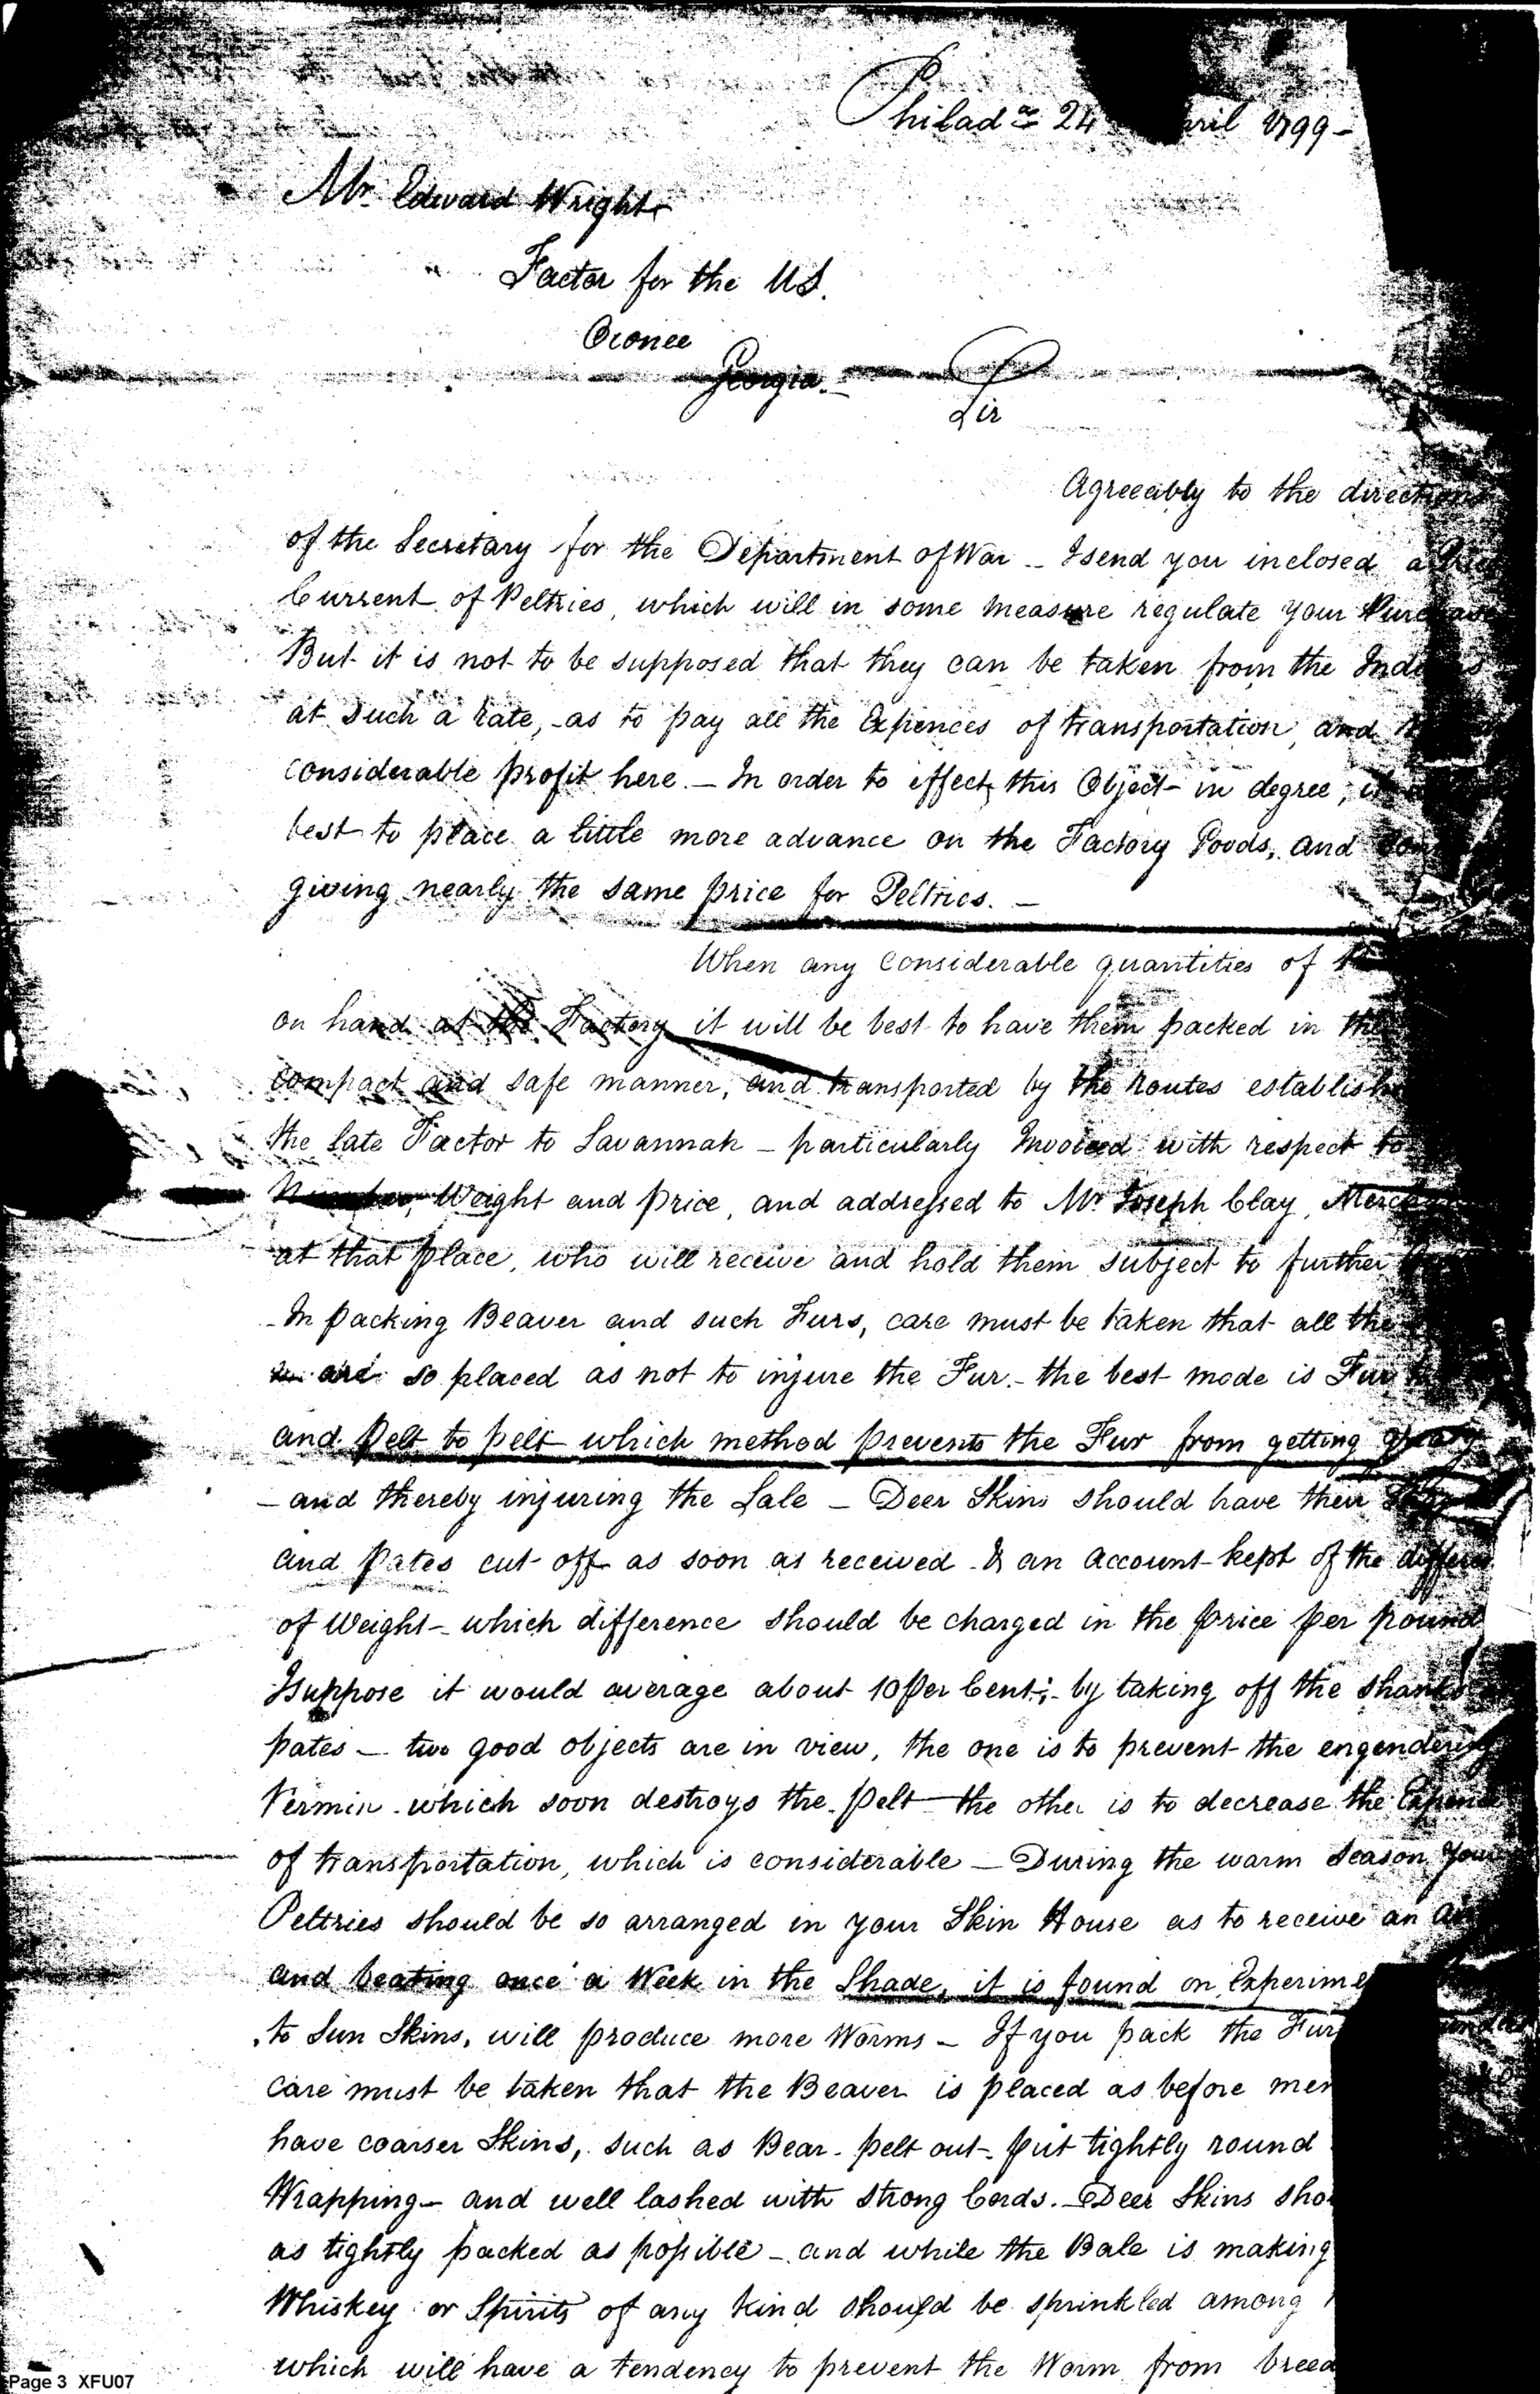 Philad.ª 24 April 1799 -
Mr. Edward Wright
Factor for the US.
Oconee
Georgia. -
Sir
Agreeably to the directions
of the Secretary for the Department of War - I send you inclosed a
Current of Peltries, which will in some measure regulate your
But it is not to be supposed that they can be taken from the Indians
at such a rate, as to pay all the Expences of transportation, and
considerable profit here. - In order to effect this Object in degree,
best to place a little more advance on the Factory Goods, and
giving nearly the same price for Peltries. -
When any considerable quantities of
on hand at the Factory it will be best to have them packed in the
compact and safe manner, and transported by the Routes establish
the late Factor to Savannah - particularly Invoiced with respect to
Number, Weight and price, and addressed to Mr. Joseph Clay,
at that place, who will receive and hold them subject to further
In packing Beaver and such Furs, care must be taken that all the
are so placed as not to injure the Fur. - the best mode is Fur
and Pelt to pelt which method prevents the Fur from getting
- and thereby injuring the Sale - Deer Skins should have their
and pates cut off as soon as received & an account kept of the
of Weight - which difference should be charged in the price per pound
I suppose it would average about 10 Per Cent; - by taking off the shanks
pates - two good objects are in view, the one is to prevent the engendering
Vermin which soon destroys the pelt the other is to decrease the Expence
of transportation, which is considerable - During the warm season your
Peltries should be so arranged in your Skin House as to receive an
and beating once a Week in the Shade, it is found on Experime
to Sun Skins, will produce more Worms - If you pack the Fur
care must be taken that the Beaver is placed as before men
have coarser Skins, such as Bear - pelt out - put tightly round
Wrapping - and well lashed with strong Cords. - Deer Skins sho
as tightly packed as possible - and while the Bale is making
Whiskey or Spirits of any kind should be sprinkled among
which will have a tendency to prevent the Worm from breed
Page 3 XFU07